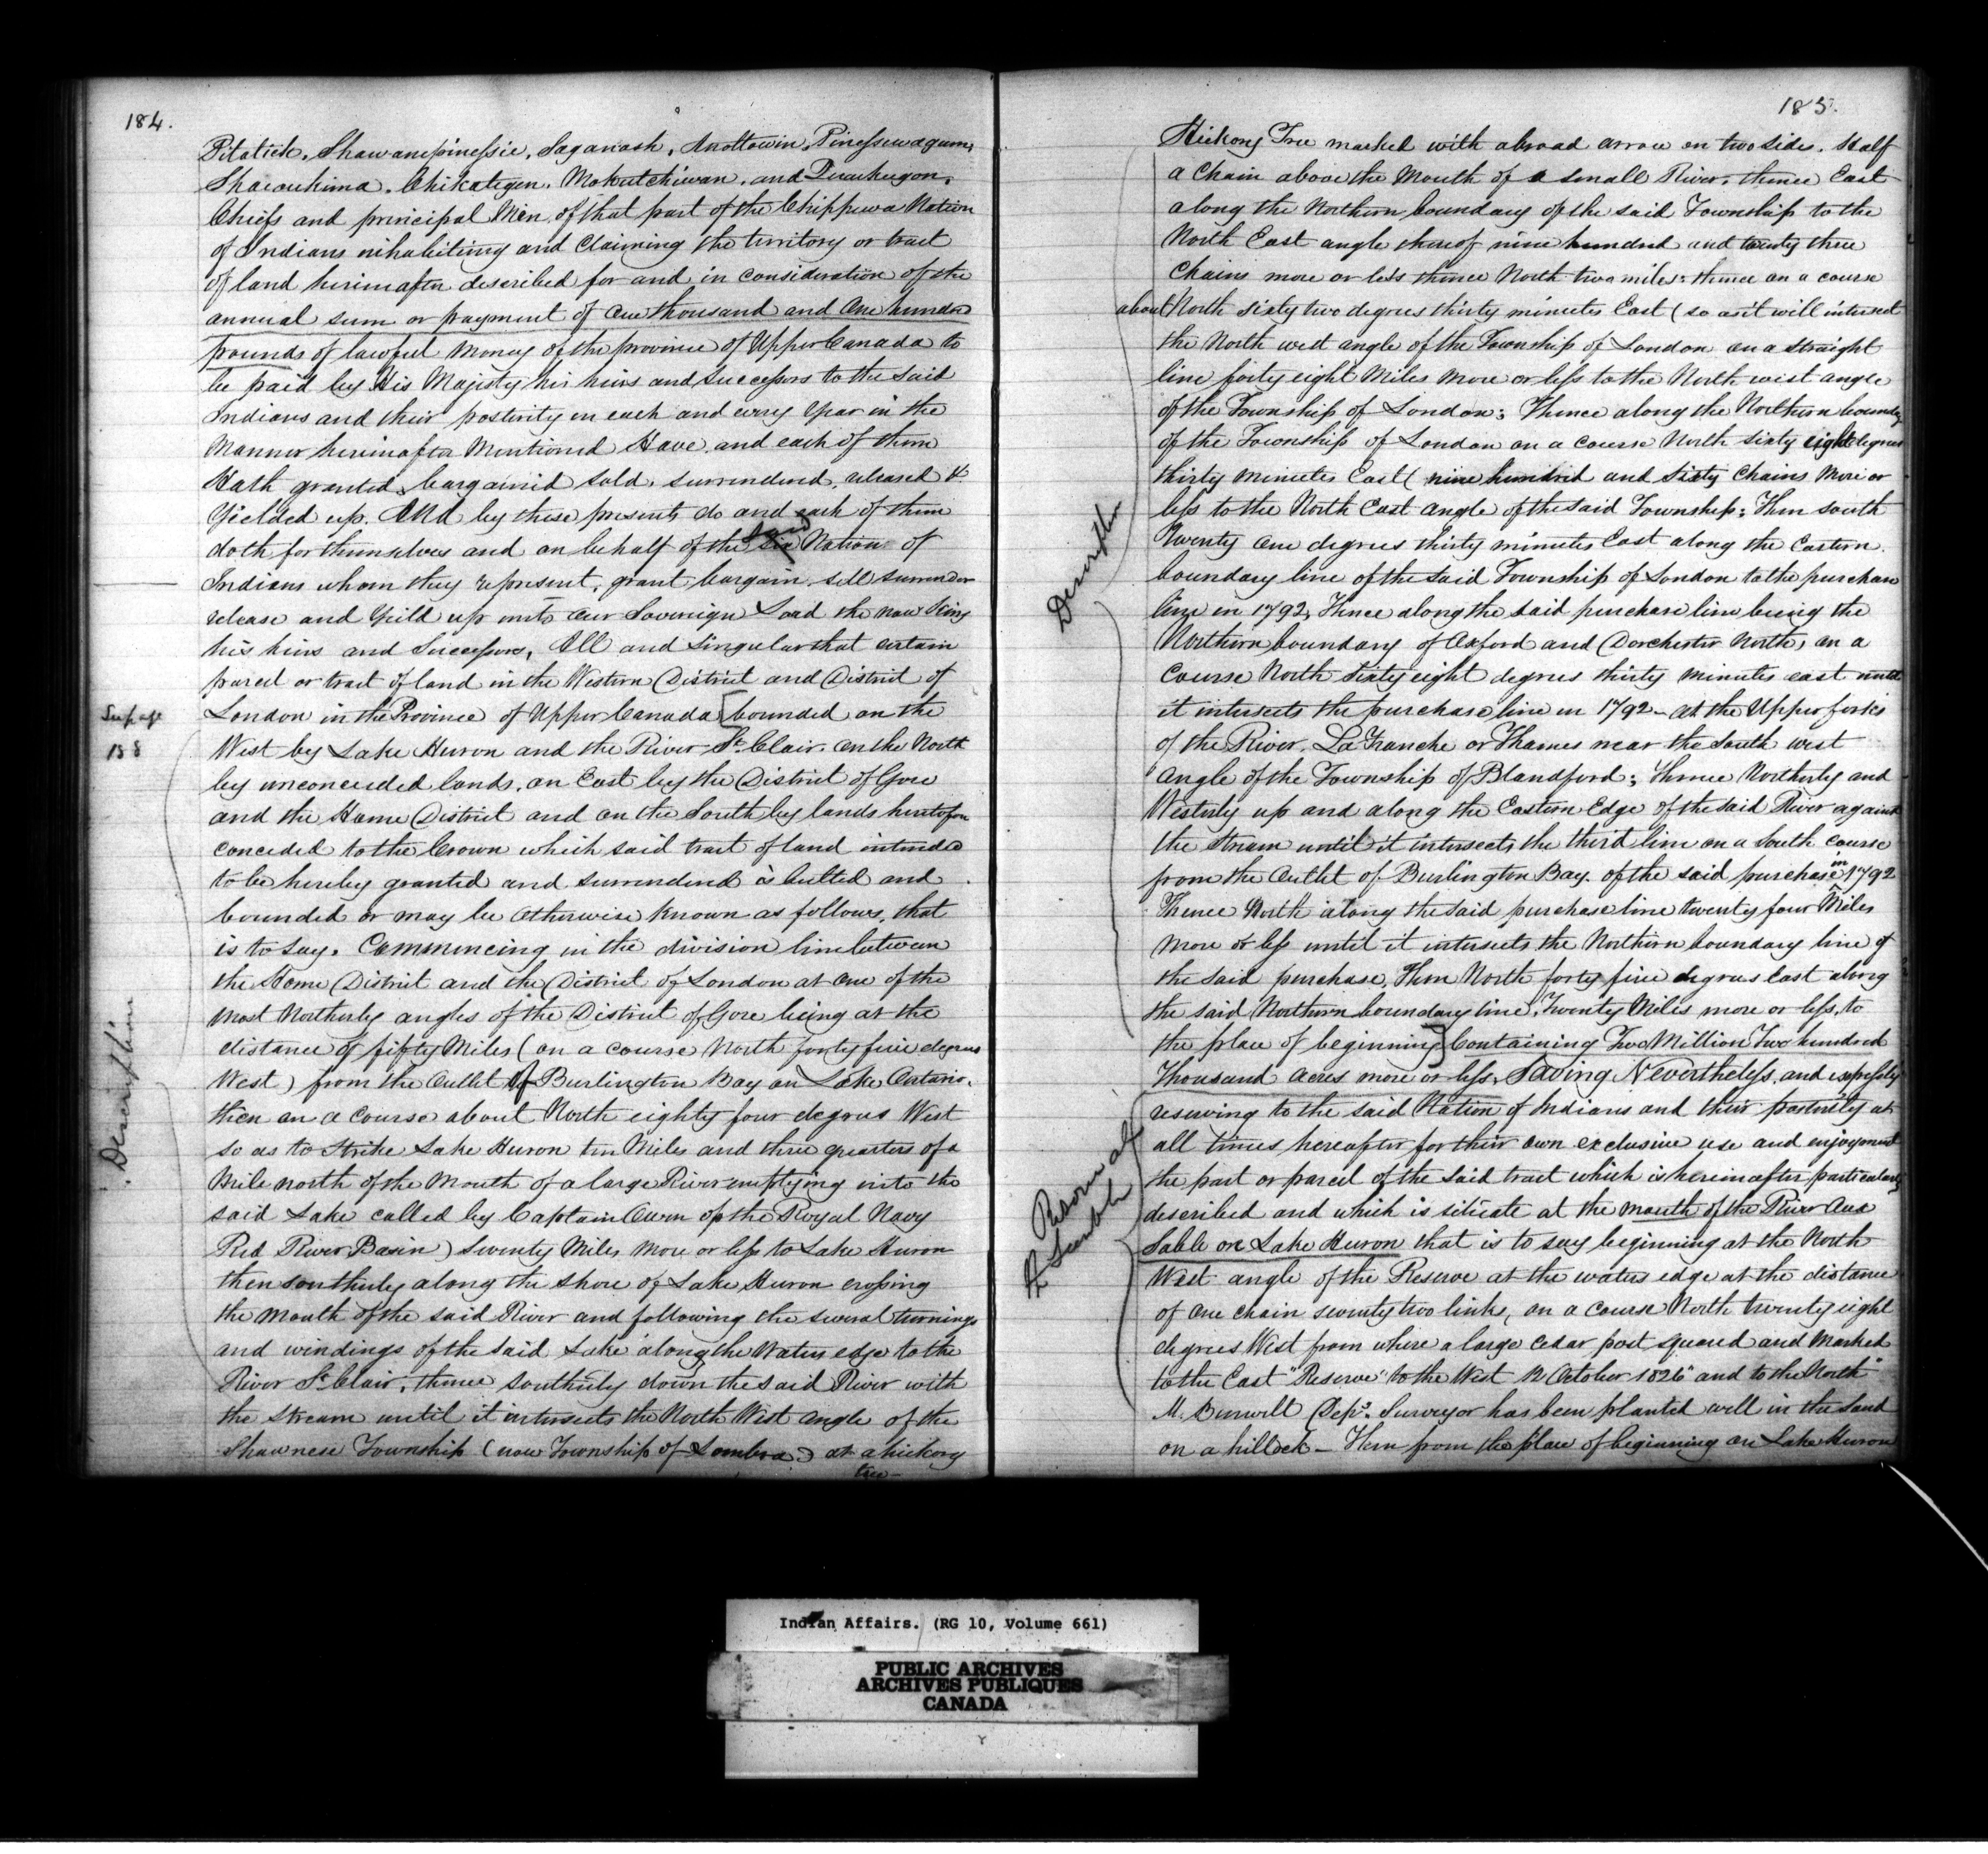 184.
Pitatick, Shawanipinissie, Saganash, Anottowin, Pinessiwagum,
Shaioukima, Chikategen, Mokutchiwan, and Quaikegon,
Chiefs and principal Men of that part of the Chippewa Nation
of Indians inhabiting and Claiming the territory or tract
of land hereinafter described for and in consideration of the
annual sum or payment of one thousand and One hundred
pounds of lawful Money of the province of Upper Canada to
be paid by His Majesty his heirs and Successors to the said
Indians and their posterity in each and every Year in the
Manner hereinafter Mentioned Have and each of them
Hath granted, bargained sold, surrendered, released &
Yielded up. And by these presents do and each of them
doth for themselves and on behalf of the said Nation of
Indians whom they represent, grant bargain sell surrender
release and Yield up unto our Sovereign Lord the now King
his heirs and Successors, All and Singular that certain
parcel or tract of land in the Western District and District of
London in the Province of Upper Canada [bounded on the
See page
188
West by Lake Huron and the River St Clair. on the North
by unconceeded lands, on East by the District of Gore
and the Home District and on the South by lands heretofore
conceded to the Crown which said tract of land intended
to be hereby granted and surrendered is butted and
bounded or may be Otherwise known as follows, that
is to say. Commencing in the division line between
the Home District and the District of London at one of the
most Northerly angles of the District of Gore being at the
distance of fifty Miles (on a course North forty five degrees
West) from the Outlet of Burlington Bay on Lake Ontario.
Description
then on a Course about North eighty four degrees West
so as to Strike Lake Huron ten Miles and three quarters of a
Mile north of the Mouth of a large River emptying into the
said Lake called by Captain Owen of the Royal Navy
Red River Basin) Seventy Miles more or less to Lake Huron
then southerly along the shore of Lake Huron crossing
the Mouth of the said River and following the several turnings
and windings of the said Lake along the Waters edge to the
River St Clair, thence Southerly down the said River with
the stream until it intersects the North West angle of the
Shawnese Township (now Township of Sombra) at a hickory
tree -
185.
Hickory Tree marked with abroad arrow on two sides. Half
a Chain above the Mouth of a small River, thence East
along the Northern boundary of the said Township to the
North East angle thereof nine hundred and twenty three
Chains more or less thence North two miles: thence on a course
about North sixty two degrees thirty minutes East (so as it will intersect
the North west angle of the Township of London on a straight
line forty eight Miles more or less to the North west angle
of the Township of London; Thence along the Northern boundy
of the Township of London on a course North sixty eight degrees
thirty minutes East (nine hundred and Sixty Chains More or
less to the North East angle of the said Township; Then south
Description
Twenty one degrees thirty minutes East along the Eastern
boundary line of the said Township of London to the purchase
line in 1792, Thence along the said purchase line being the
Northern boundary of Oxford and Dorchester North, on a
Course North sixty eight degrees thirty minutes east until
it intersects the purchase line in 1792 - at the Upper forks
of the River La Tranche or Thames near the South west
angle of the Township of Blandford; Thence Northerly and
Westerly up and along the Eastern Edge of the said River against
the Stream until it intersects the third line on a South course
from the Outlet of Burlington Bay. of the said purchase in 1792
Thence North along the said purchase line twenty four Miles
more or less until it intersects the Northern boundary line of
the said purchase, Then North forty five degrees East along
the said Northern boundary line, Twenty Miles more or less, to
the place of beginning] Containing Two Million Two hundred
Thousand acres more or less, Saving Nevertheless, and expressly
reserving to the said Nation of Indians and their posterity at
all times hereafter for their own exclusive use and enjoyment
the part or parcel of the said tract which is hereinafter particularly
described and which is situate at the mouth of the River Aux
Sable on Lake Huron that is to say beginning at the North
West angle of the Reserve at the waters edge at the distance
of one chain seventy two links, on a course North twenty eight
degrees West from where a large cedar post squared and Marked
to the East "Reserve" to the West 12 October 1826 and to the North"
M. Burwell Depy. Surveyor has been planted well in the Sand
on a hillock - Then from the place of beginning on Lake Huron
Indian Affairs. (RG 10, Volume 661)
PUBLIC ARCHIVES
ARCHIVES PUBLIQUES
CANADA